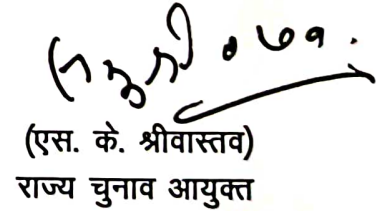 (एस. के. श्रीवास्तव)
राज्य चुनाव आयुक्त